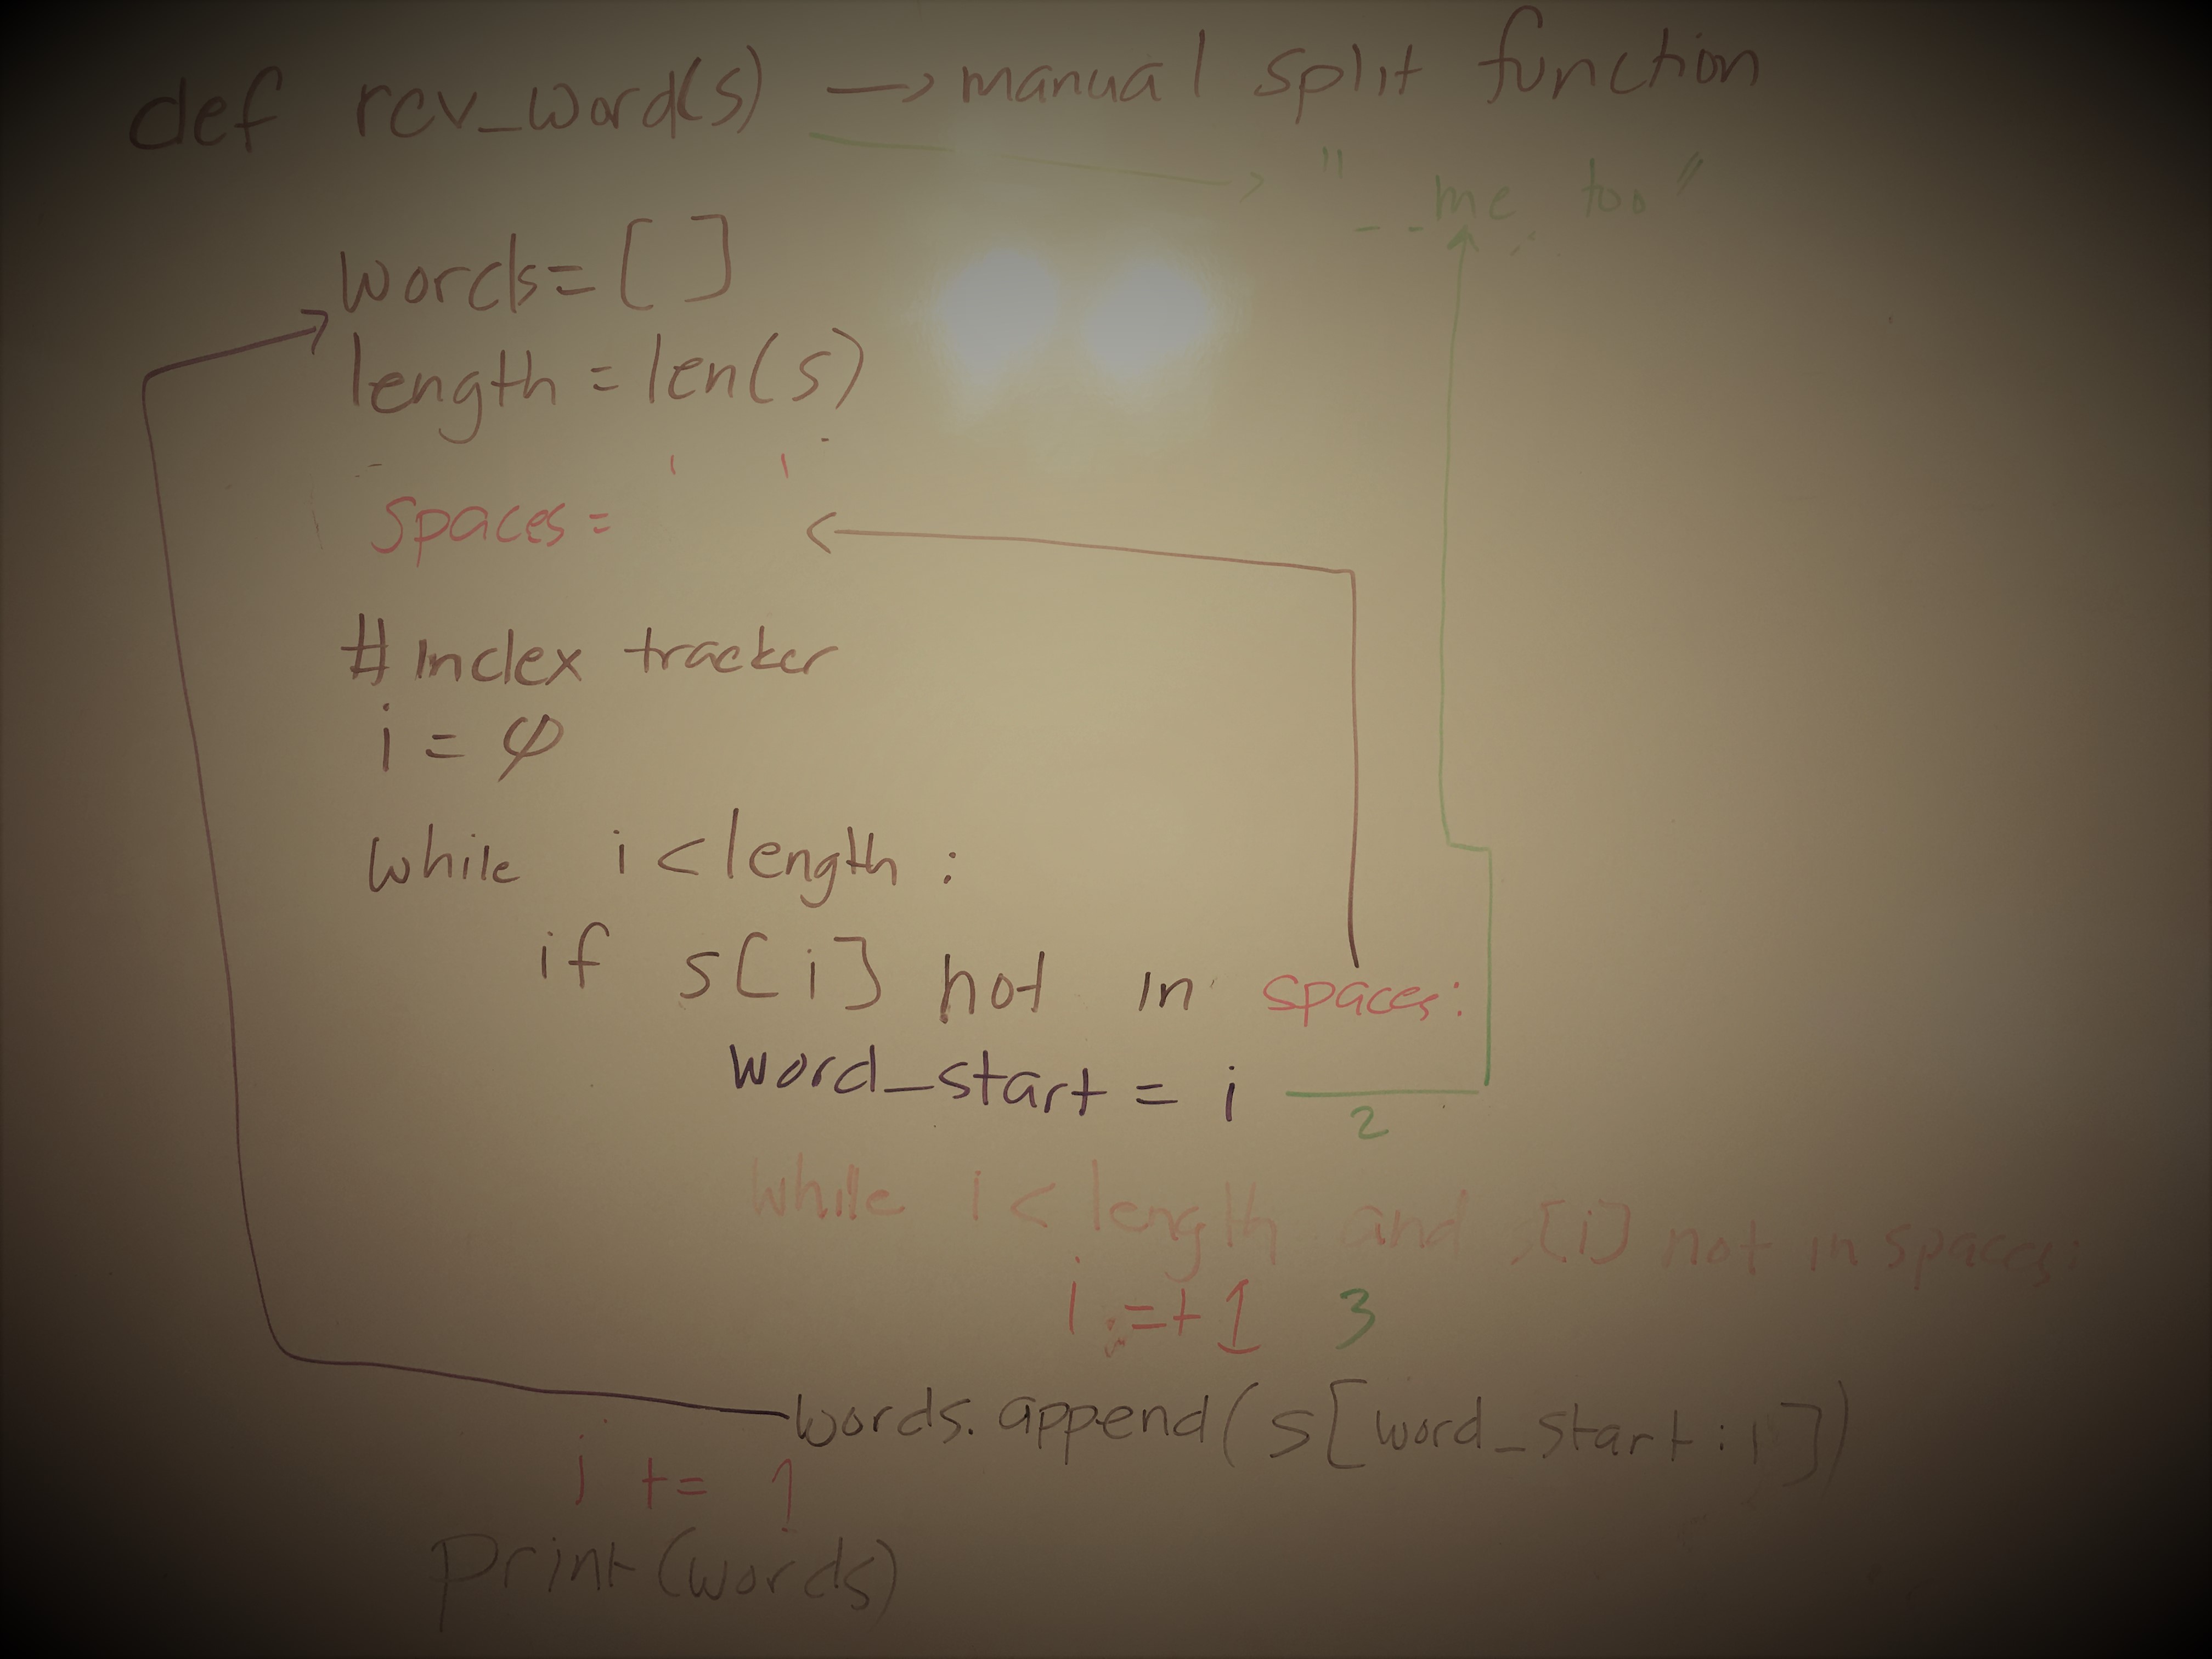 def rev_word(s) → manual split function
"_ _ me too"
words=[ ]
length = len(s)
spaces = ' '
#Index tracker
i = 0
while i < length :
if s[i] not in spaces:
word_start = i
2
while i < length and s[i] not in spaces:
i =+1 3
words.append(s[word_start : i])
i += 1
Print(words)